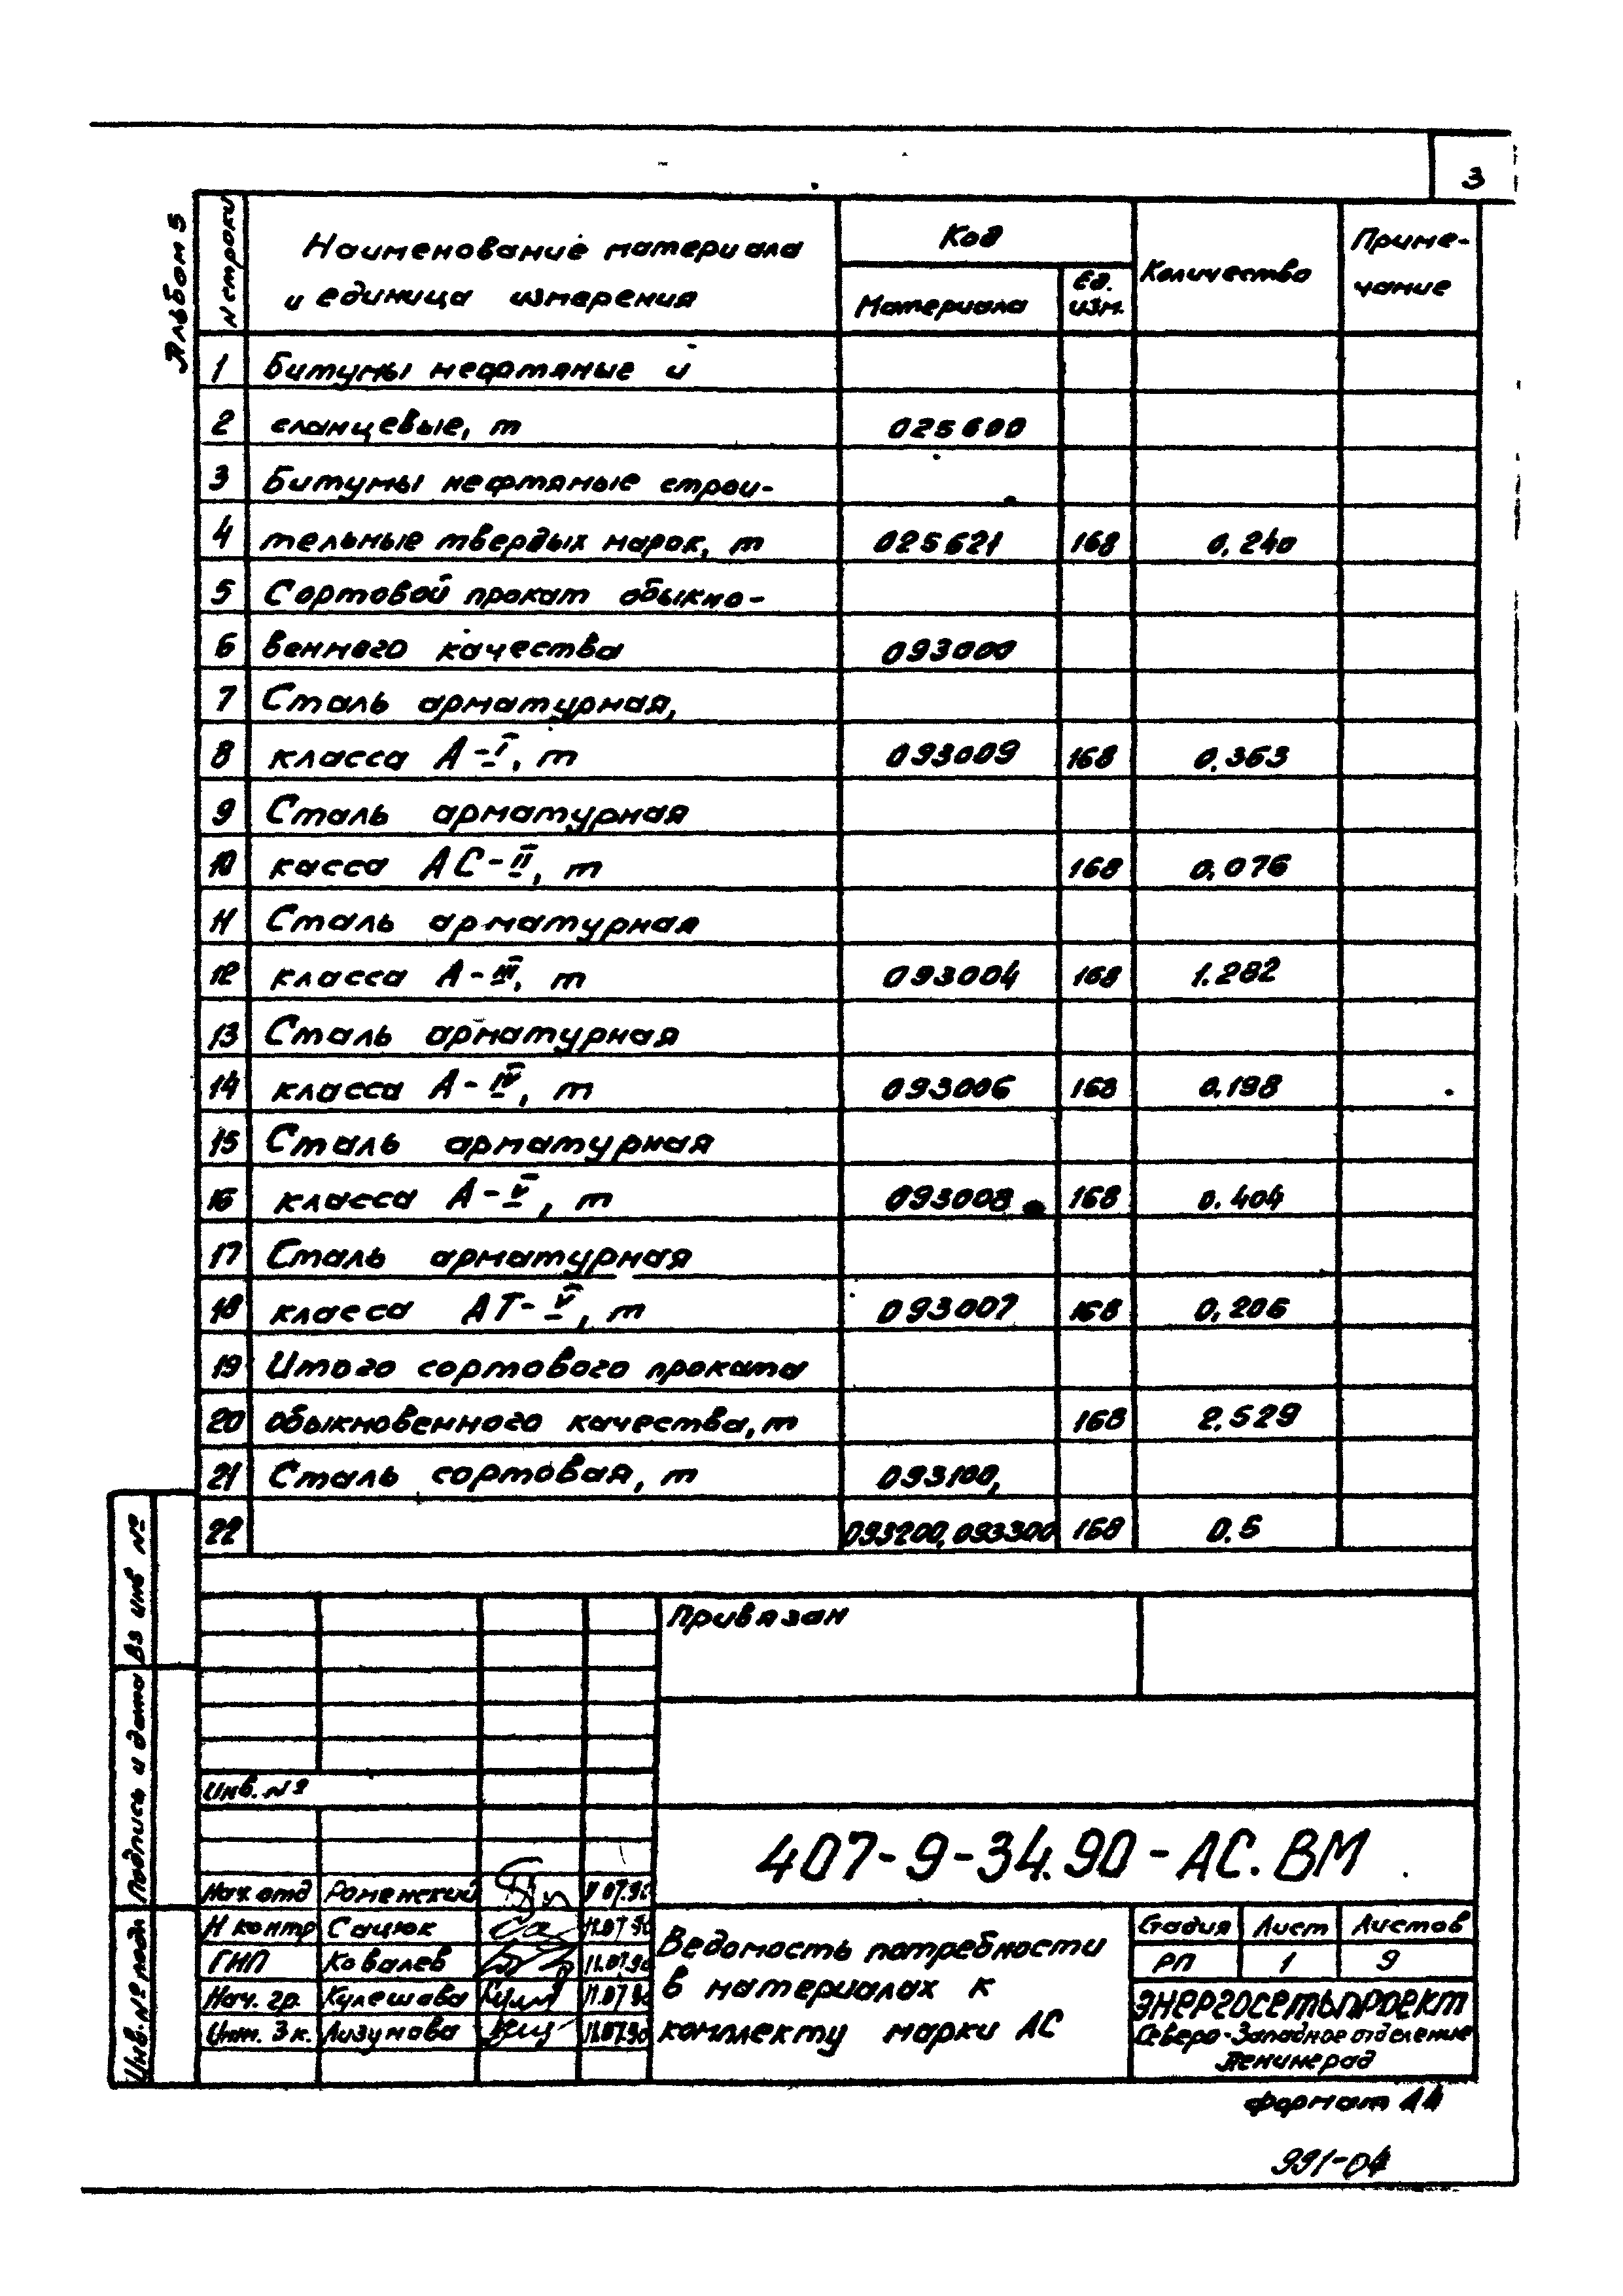 3
Альбом 5
N строки
Наименование материала
и единица измерения
Код
Материала
Ед.
изм.
Количество
Приме-
чание
1 Битумы нефтяные и
2 сланцевые, т 025600
3 Битумы нефтяные строи-
4 тельные твердых марок, т 025621 168 0,240
5 Сортовой прокат обыкно-
6 венного качества 093000
7 Сталь арматурная,
8 класса А-I, т 093009 168 0.363
9 Сталь арматурная
10 касса АС-II, т 168 0,076
11 Сталь арматурная
12 класса А-III, т 093004 168 1.282
13 Сталь арматурная
14 класса А-IV, т 093006 168 0,198
15 Сталь арматурная
16 класса А-V, т 093008 168 0.404
17 Сталь арматурная
18 класса АТ-V, т 093007 168 0,206
19 Итого сортового проката
20 обыкновенного качества, т 168 2,529
21 Сталь сортовая, т 093100,
22 093200, 093300 168 0,5
Вз инв №
Подпись и дата
Инв. № подл
Привязан
Инв. №
407-9-34.90-АС.ВМ
Нач. отд Роменский
Н контр Сацюк
ГИП Ковалев
Нач. гр. Кулешова
Инж. 3 к. Лизунова
Ведомость потребности
в материалах к
комплекту марки АС
Стадия Лист Листов
РП 1 9
ЭНЕРГОСЕТЬПРОЕКТ
Северо-Западное отделение
Ленинград
формат
991-04